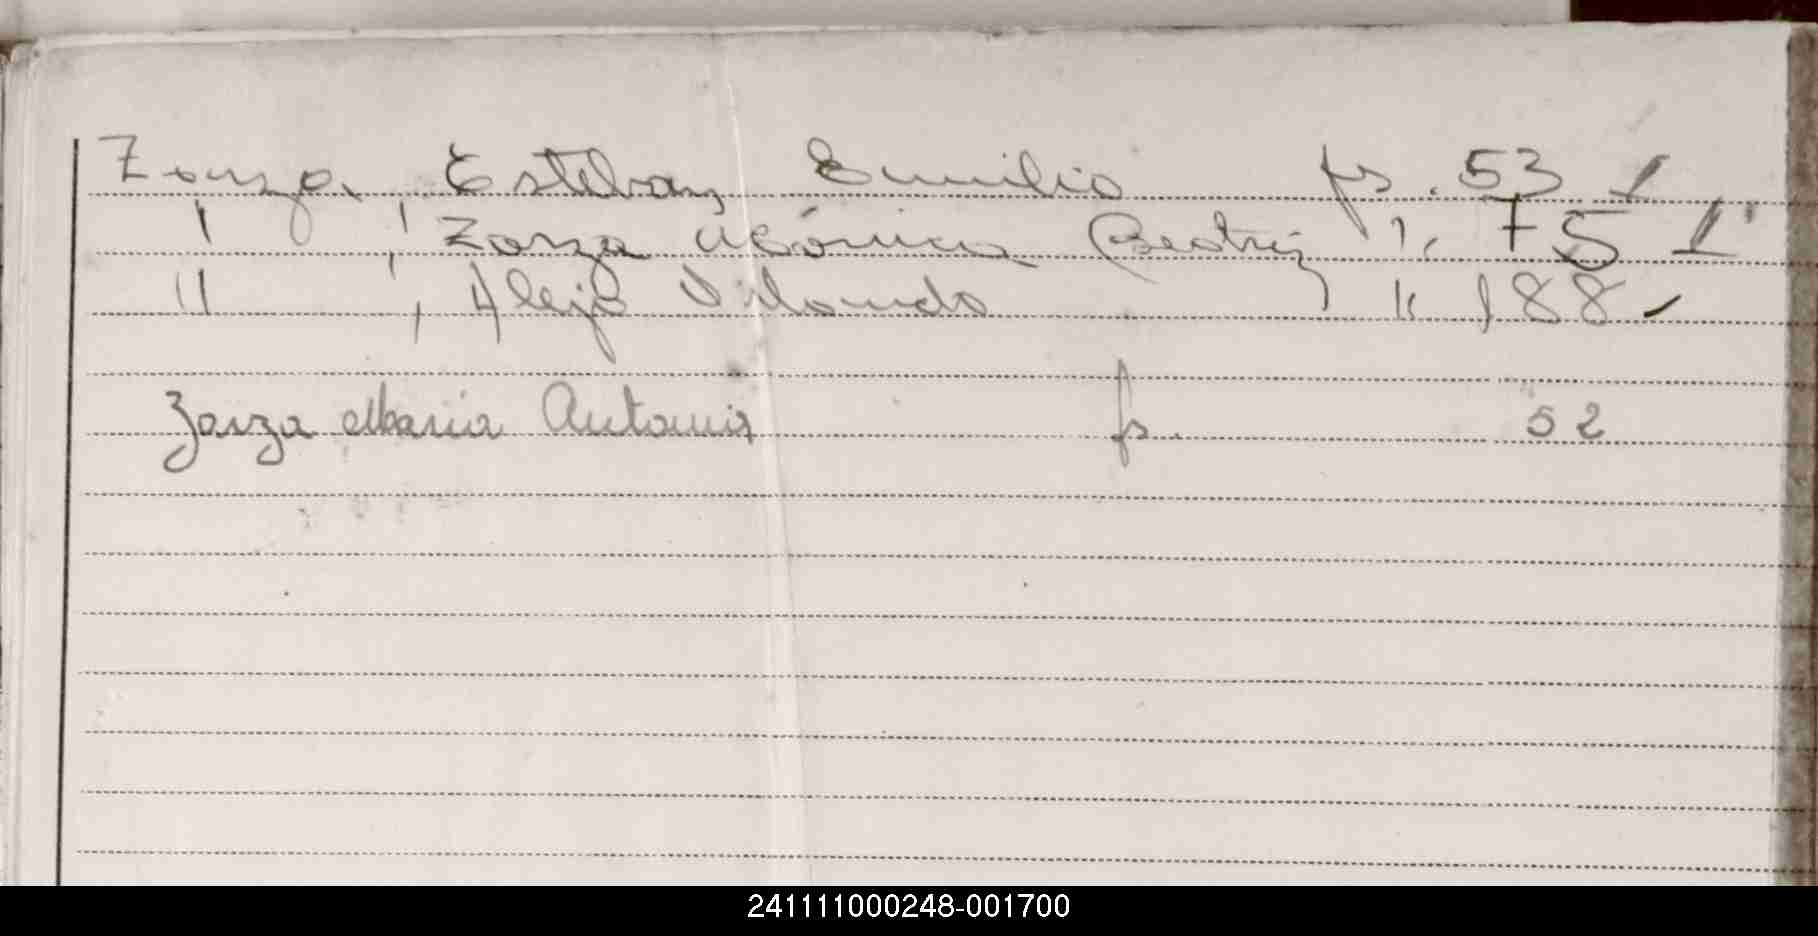 Zorza, Esteban Emilio fs. 53 1
" , Zorza Mónica Beatriz " 75 1
" , Alejo Orlando " 188
Zarza Maria Antonia fs. 52
241111000248-001700